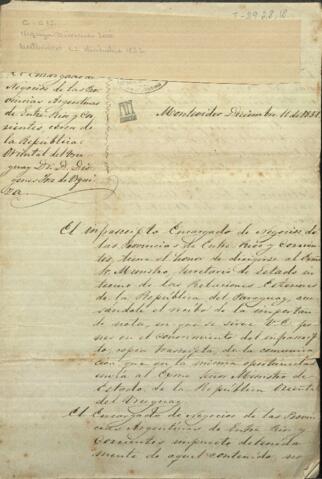 Montevideo Diciembre 11 de 1851.
El Encargado de
Negocios de las Pro
vincias Argentinas
de Entre Rios y Cor
rientes, cerca de
la República
Oriental del Uru
guay Dr. D. Dió
genes José de Urqui
za
El infrascripto Encargado de Negocios de
las Provincias de Entre Rios y Corrien
tes, tiene el honor de dirigirse al Señor
Ministro, Secretario de Estado in
terino de las Relaciones Esteriores
de la República del Paraguay, acu
sandole el recibo de la importan
te nota, en que se sirve V.E. po
ner en el conocimiento del infrascrip
to, copia transcripta de la comunica
cion que en la misma oportunidad
envia al Exmo Señor Ministro de
Estado de la República Oriental
del Uruguay.
El Encargado de Negocios de las Provin
cias Argentinas de Entre Rios y
Corrientes impuesto detenida
mente de aquel contenido, no